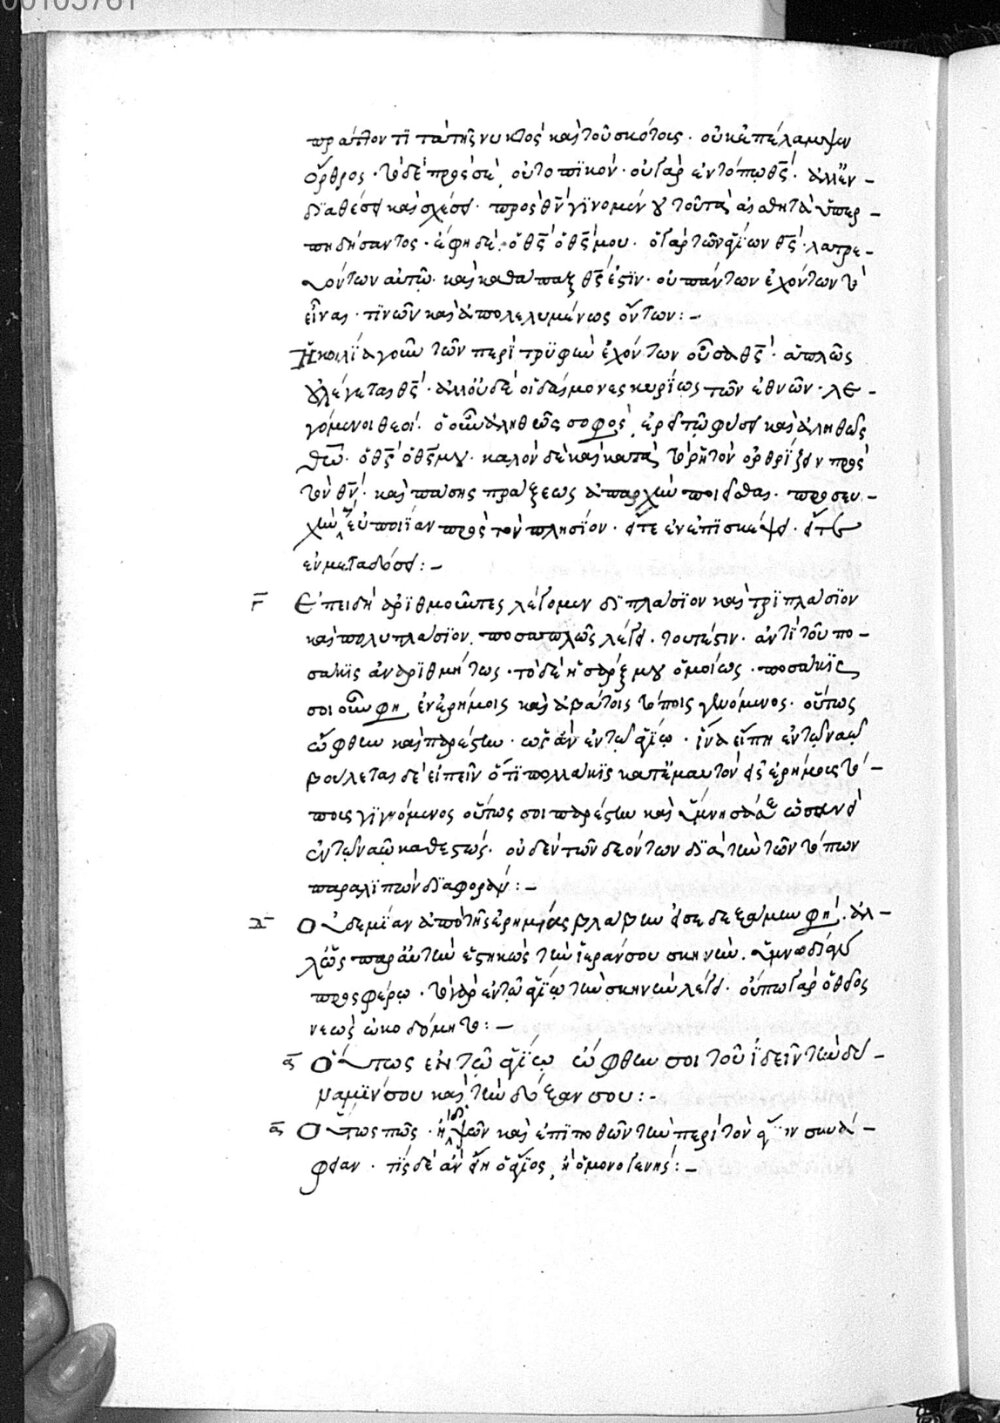 00105761
πράττοντι τὰ τῆς νυκτὸς καὶ τοῦ σκότους · οὐκ ἐπέλαμψεν
ὄρθρος · τὸ δὲ πρὸς σὲ, οὐ τοπϊκόν · οὐ γὰρ ἐν τόπῳ θς · ἀλλ' ἐν –
διαθέσει καὶ σχέσει · πρὸς θν γϊνομένου τοῦ τὰ αἰσθητὰ ὑπερ –
πηδήσαντος · ἔφη δὲ · ὁ θς ὁ θς μου · ὁ γὰρ τῶν ἁγίων θς · λατρευ
όντων αὐτῷ · καὶ καθάπαξ θς ἐστϊν · οὐ πάντων ἐχόντων τὸ
εἶναι · τϊνῶν καὶ ἀπολελυμένως ὄντων : –
Ἡ κοιλΐα γοῦν τῶν περὶ τρϋφὴν ἐχόντων οὖσα θς · ἁπλῶς
λέγεται θς · ἀλλ' οὐδὲ οἱ δαίμονες κυρίως τῶν ἐθνῶν · λε –
γόμενοι θεοί · ὁ οὖν ἀληθῶς σοφὸς, ἐρεῖ τῷ φύσει καὶ ἀληθῶς
θεῷ · ὁ θς ὁ θς μου · καλὸν δὲ καὶ κατὰ τὸ ῥητὸν ὀρθρίζειν πρὸς
τὸν θν · καὶ πάσης πράξεως ἀπαρχὴν ποιεῖσθαι · προσευ –
χὴν, εὐποιΐαν πρὸς τὸν πλησίον · εἴτε ἐν ἐπισκέψει · εἴτε
ἐν μεταδόσει : –
Γ Ἐπειδὴ ἀρϊθμοῦντες λέγομεν διπλάσϊον καὶ τρϊπλάσϊον
καὶ πολυπλάσϊον, ποσαπλῶς λέγει · τουτέστιν · ἀντὶ τοῦ πο –
σάκϊς ἀναρϊθμήτως · τὸ δὲ ἡ σάρξ μου ὁμοίως · ποσάκϊς
σοι οὖν φη, ἐν ἐρήμοις καὶ ἀβάτοις τόποις γενόμενος · οὕτως
ὤφθην καὶ παρέστην · ὡς ἂν ἐν τῷ ἁγίῳ · ἵνα εἴπῃ ἐν τῷ ναῷ
βούλεται δὲ εἰπεῖν ὅτϊ πολλάκϊς κατ' ἐμαυτὸν ἐν ἐρήμοις τό –
ποις γϊγνόμενος οὕτως σοι παρέστην καὶ ὕμνησά σε ὡσανεὶ
ἐν τῷ ναῷ καθεστώς · οὐδὲν τῶν δεόντων διὰ τὴν τῶν τόπων
παραλϊπὼν διαφοράν : –
Δ Οὐδεμίαν ἀπὸ τῆς ἐρημίας βλάβην εἰσεδεξάμην φη · ἀλ –
λ' ὡς παρ' αὐτὴν ἑστηκὼς τὴν ἱεράν σου σκηνὴν, ὑμνῳδίαν
προσφέρω · τὸ γὰρ ἐν τῷ ἁγίῳ τὴν σκηνὴν λέγει · οὔπω γὰρ ὁ θεῖος
νεὼς ᾠκοδόμητο : –
α Οὕτως ἐν τῷ ἁγίῳ ὤφθην σοι τοῦ ἰδεῖν τὴν δύ –
ναμϊν σου καὶ τὴν δόξαν σου : –
α Οὕτως πῶς · ἢ διψῶν καὶ ἐπϊποθῶν τὴν περὶ τὸν υἱὸν
φειαν · τίς δὲ ἂν εἴη ὁ ἅγιος, ἢ ὁ μονογενής : –